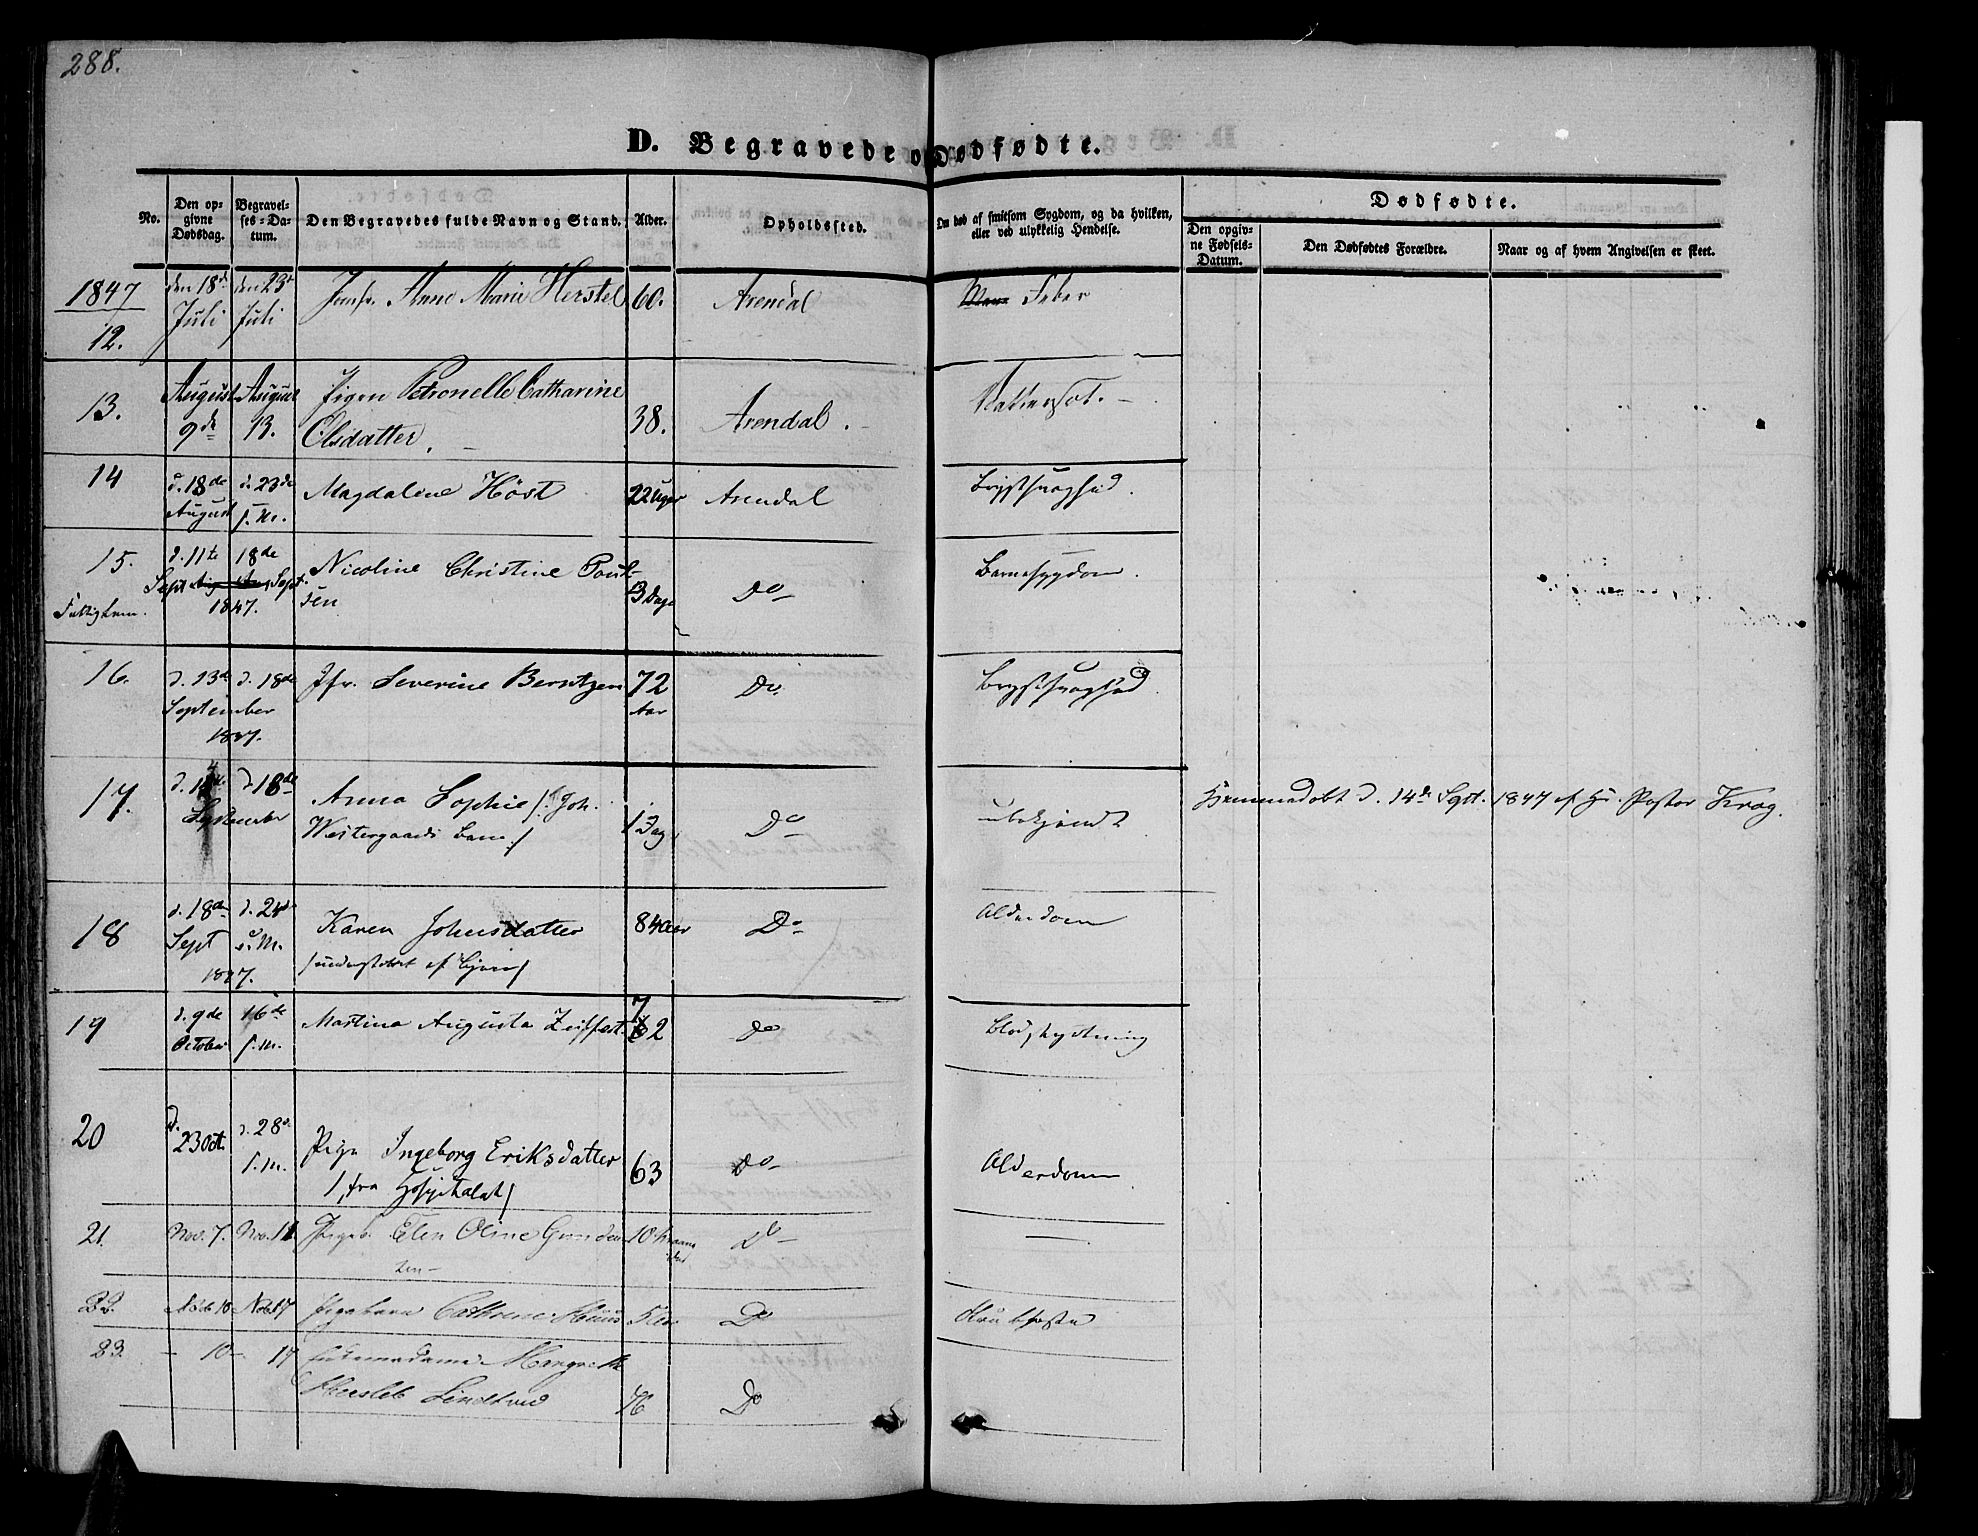 288.
D. Begravede og Dødfødte.
No. Den opgivne Dødsdag. Begravelses-Datum. Den Begravedes fulde Navn og Stand. Alder. Opholdssted. Om død af smitsom Sygdom, og da hvilken, eller ved ulykkelig Hendelse. Dødfødte.
Den opgivne Fødsels-Datum. Den Dødfødtes Forældre. Naar og af hvem Angivelsen er skeet.
1847
12. den 18de Juli den 23de Juli Jomfr. Anne Marie Herstel 60. Arendal Feber
13. August 9de August 13. Pigen Petronelle Catharine
Olsdatter. 38. Arendal.
14 d. 18de August d. 23de s. M. Magdaline Höst 22 Uger Arendal Brystsvaghed.
15. d. 11te Sept 18de Sept. 1847. Nicoline Christine Poul-
sen 3 Dage Do Barnesygdom.
16. d. 13de d. 18de September 1847. Jfr. Severine Berntzen 72 Aar Do Brystsvaghed.
17. d. 14de September d. 18de Anna Sophie /: Joh.
Westergaards barn :/ 1 Dag Do ubekjendt Hjemmedøbt d. 14de Sept. 1847 af Hr. Pastor Krog.
18 d. 18de Sept 1847. d. 24de s. M. Karen Johnsdatter
/understøttet af Byen/ 84 Aar Do Alderdom
19 d. 9de October 16de s. M. Martina Augusta 72 Do Blodstyrtning
20 d. 23 Oct. d. 28de s. M. Pige Ingeborg Eriksdatter
/fra Hospitalet/ 63 Do Alderdom.
21. Nov. 7. Nov. 11. Elen Oline
10 Do —
22. Nov 10 Nov 17 Pigebarn Cathrine 5 Aar Do
23. — 10 — 17 Enkemadame Margrethe
76 Do